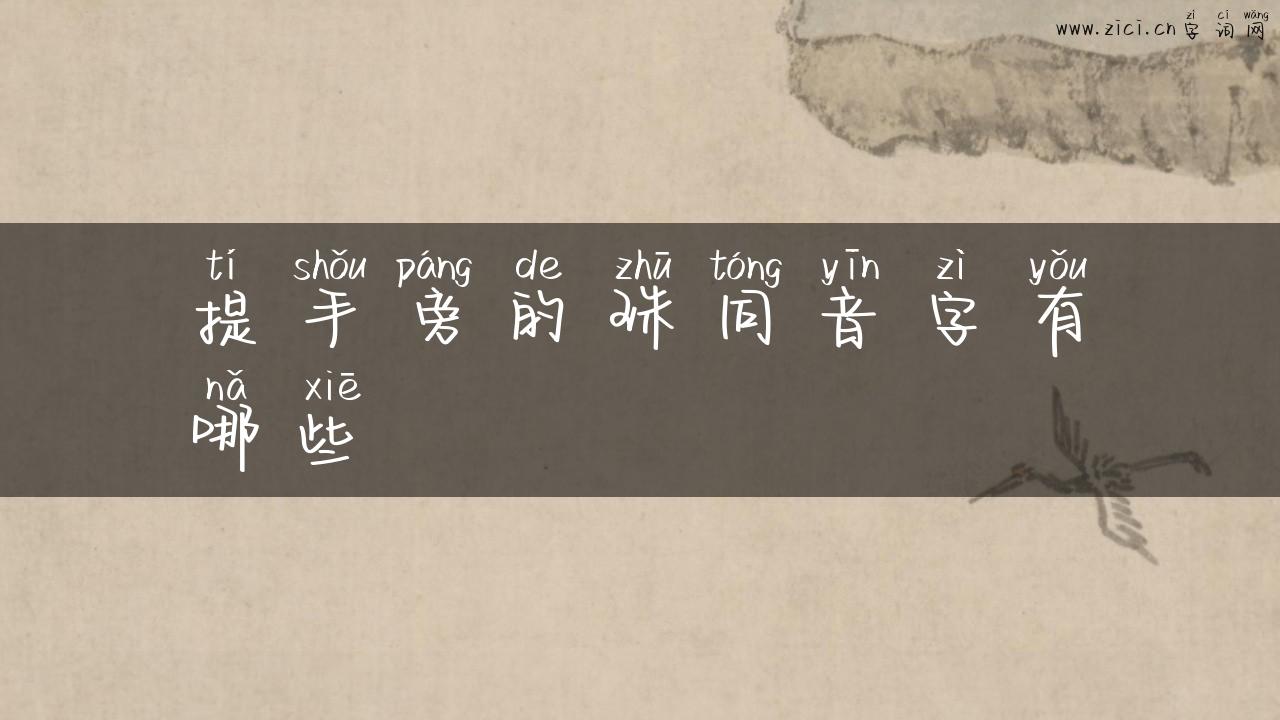 zì cí wǎng
www.zici.cn字词网
tí shǒu páng de zhū tóng yīn zì yǒu
提手旁的珠同音字有
nǎ xiē
哪些